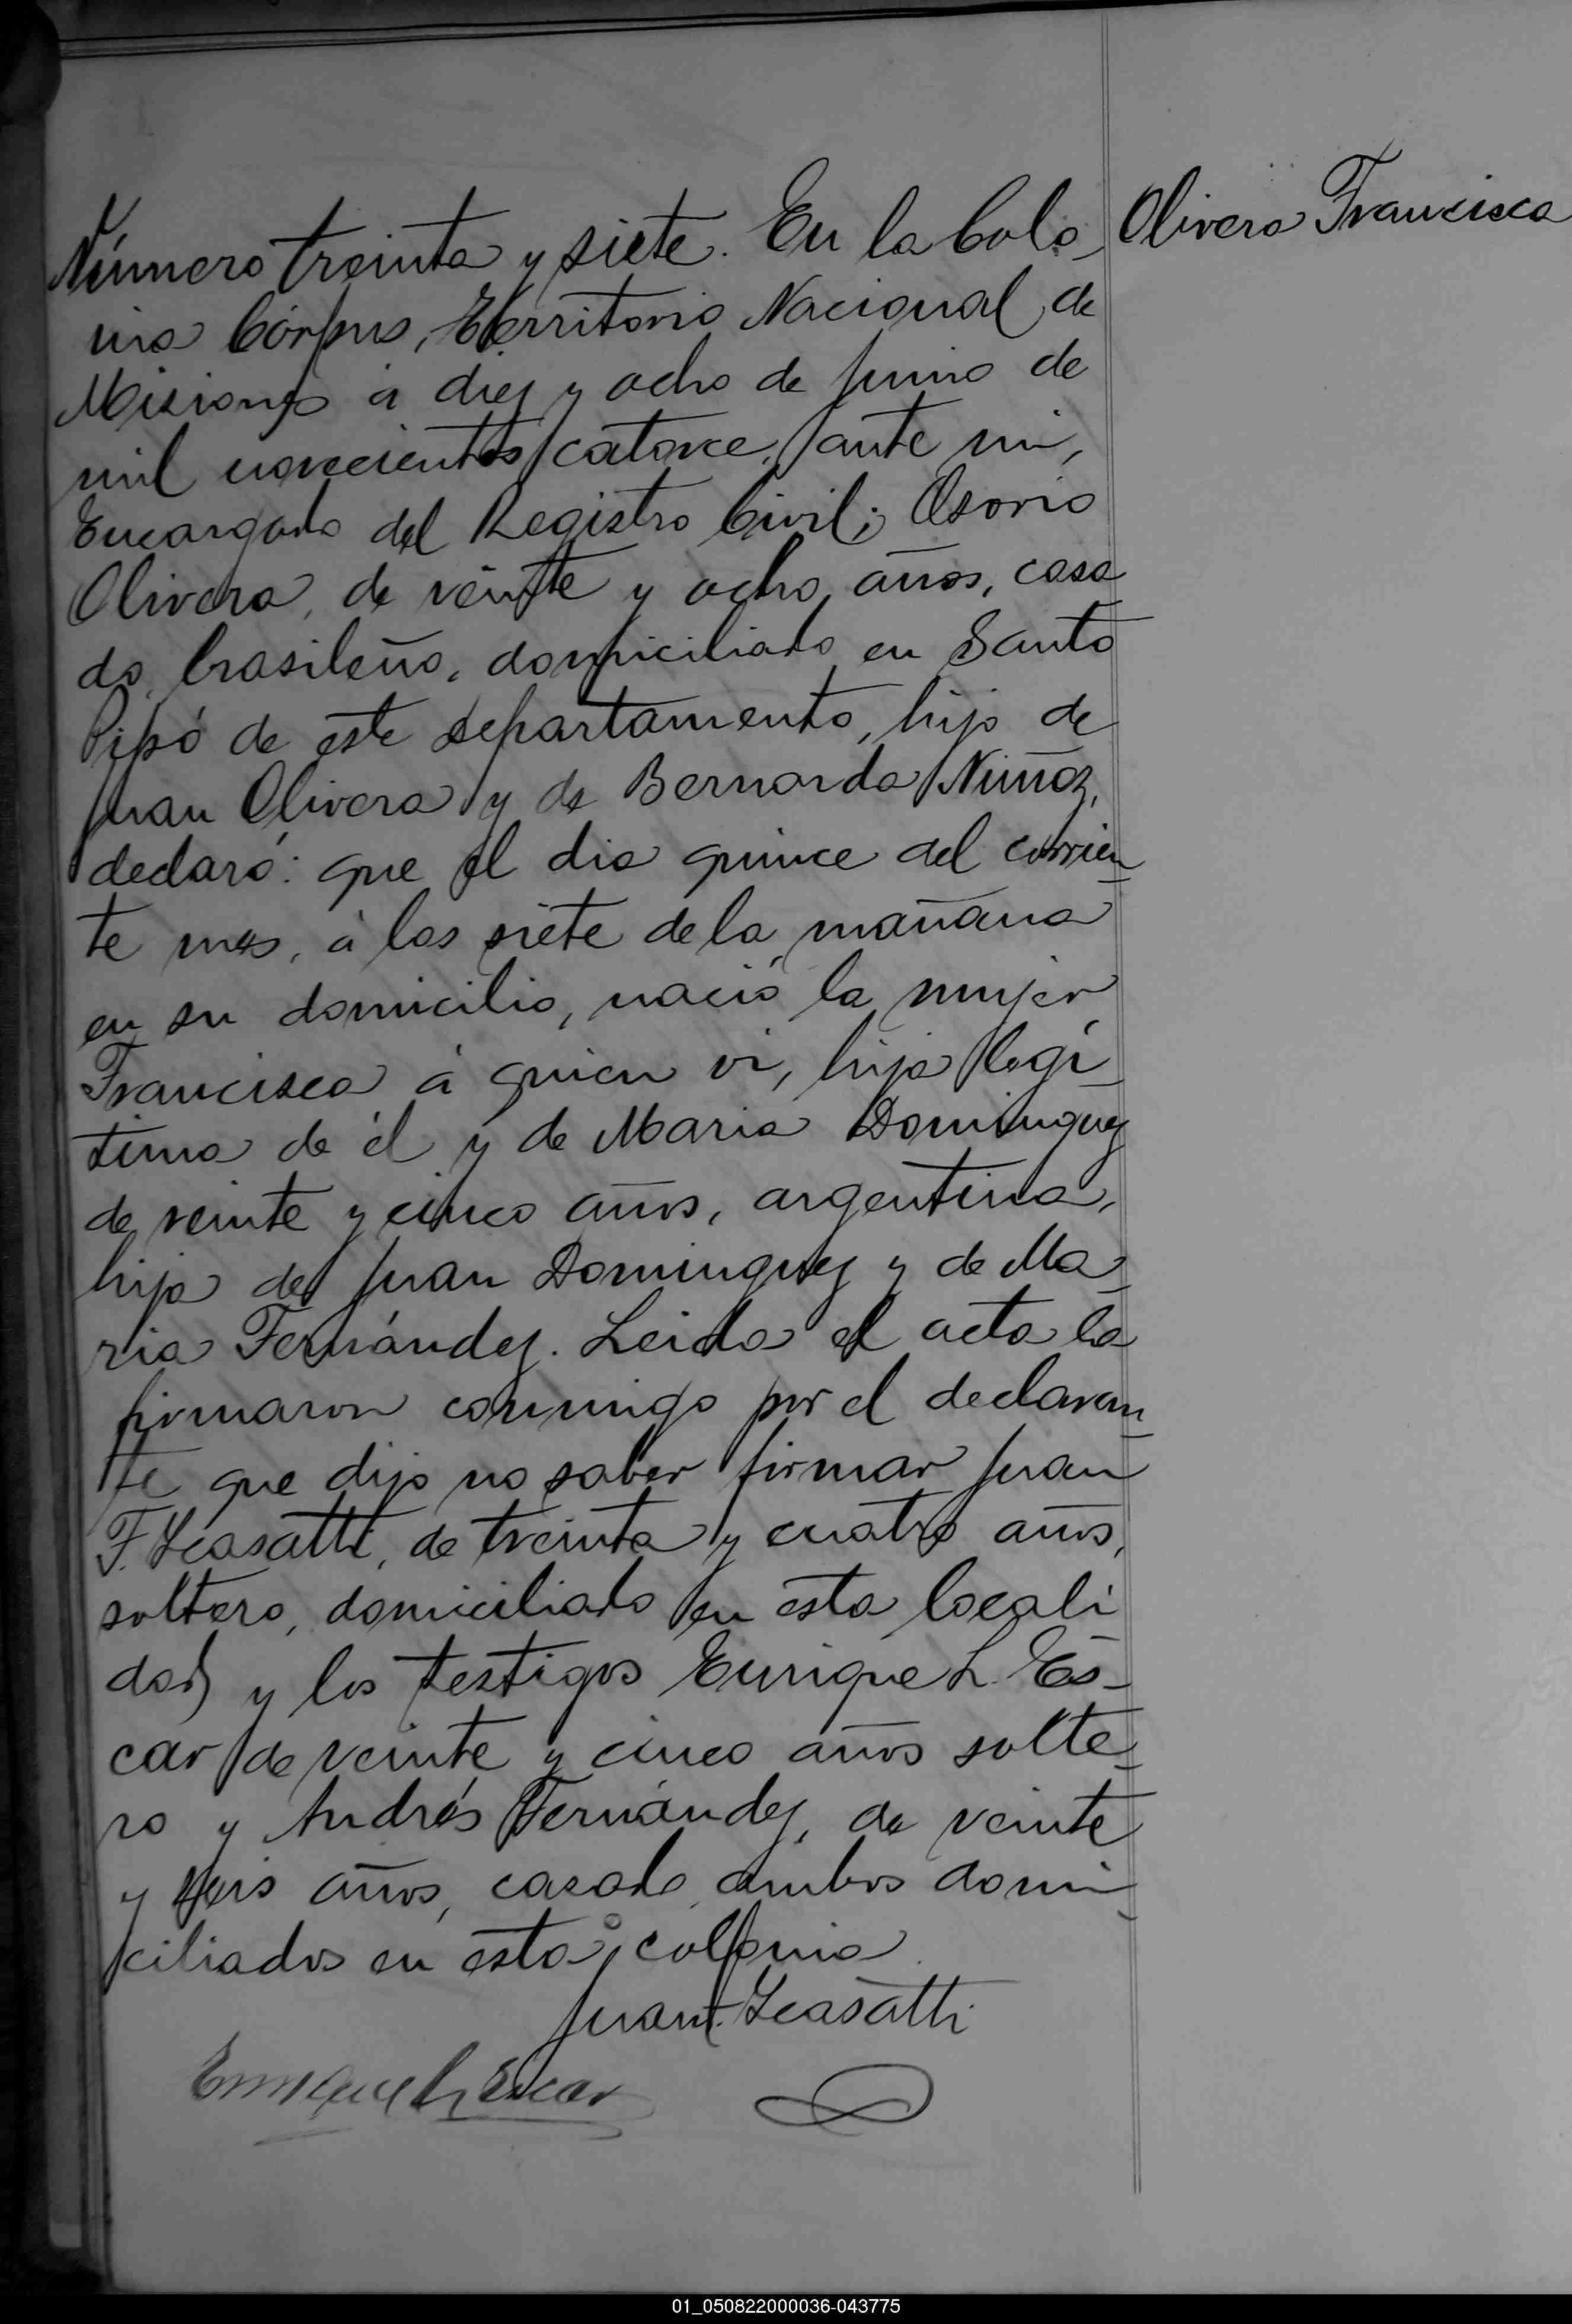 Olivera Francisca
Número treinta y siete. En la Colo
nia Córpus, Territorio Nacional de
Misiones á diez y ocho de Junio de
mil novecientos catorce, ante mi,
Encargado del Registro Civil; Osorio
Olivera, de veinte y ocho años, casa
do, brasileño, domiciliado en Santo
Pipó de este departamento, hijo de
Juan Olivera y de Bernarda Nuñez,
declaró: que el dia quince del corrien
te mes, á las siete de la mañana
en su domicilio, nació la mujer
Francisca á quien vi, hija legi
tima de él y de Maria Dominguez
de veinte y cinco años, argentina,
hija de Juan Dominguez y de Ma
ria Fernández. Leida el acta la
firmaron conmigo por el declaran
te que dijo no saber firmar Juan
F. Leasatti, de treinta y cuatro años,
soltero, domiciliado en esta locali
dad y los testigos Enrique L. Es-
car de veinte y cinco años solte
ro y Andrés Fernández, de veinte
y seis años, casado, ambos domi
ciliados en esta colonia
Juan F. Leasatti
Enrique L. Escar
01_050822000036-043775